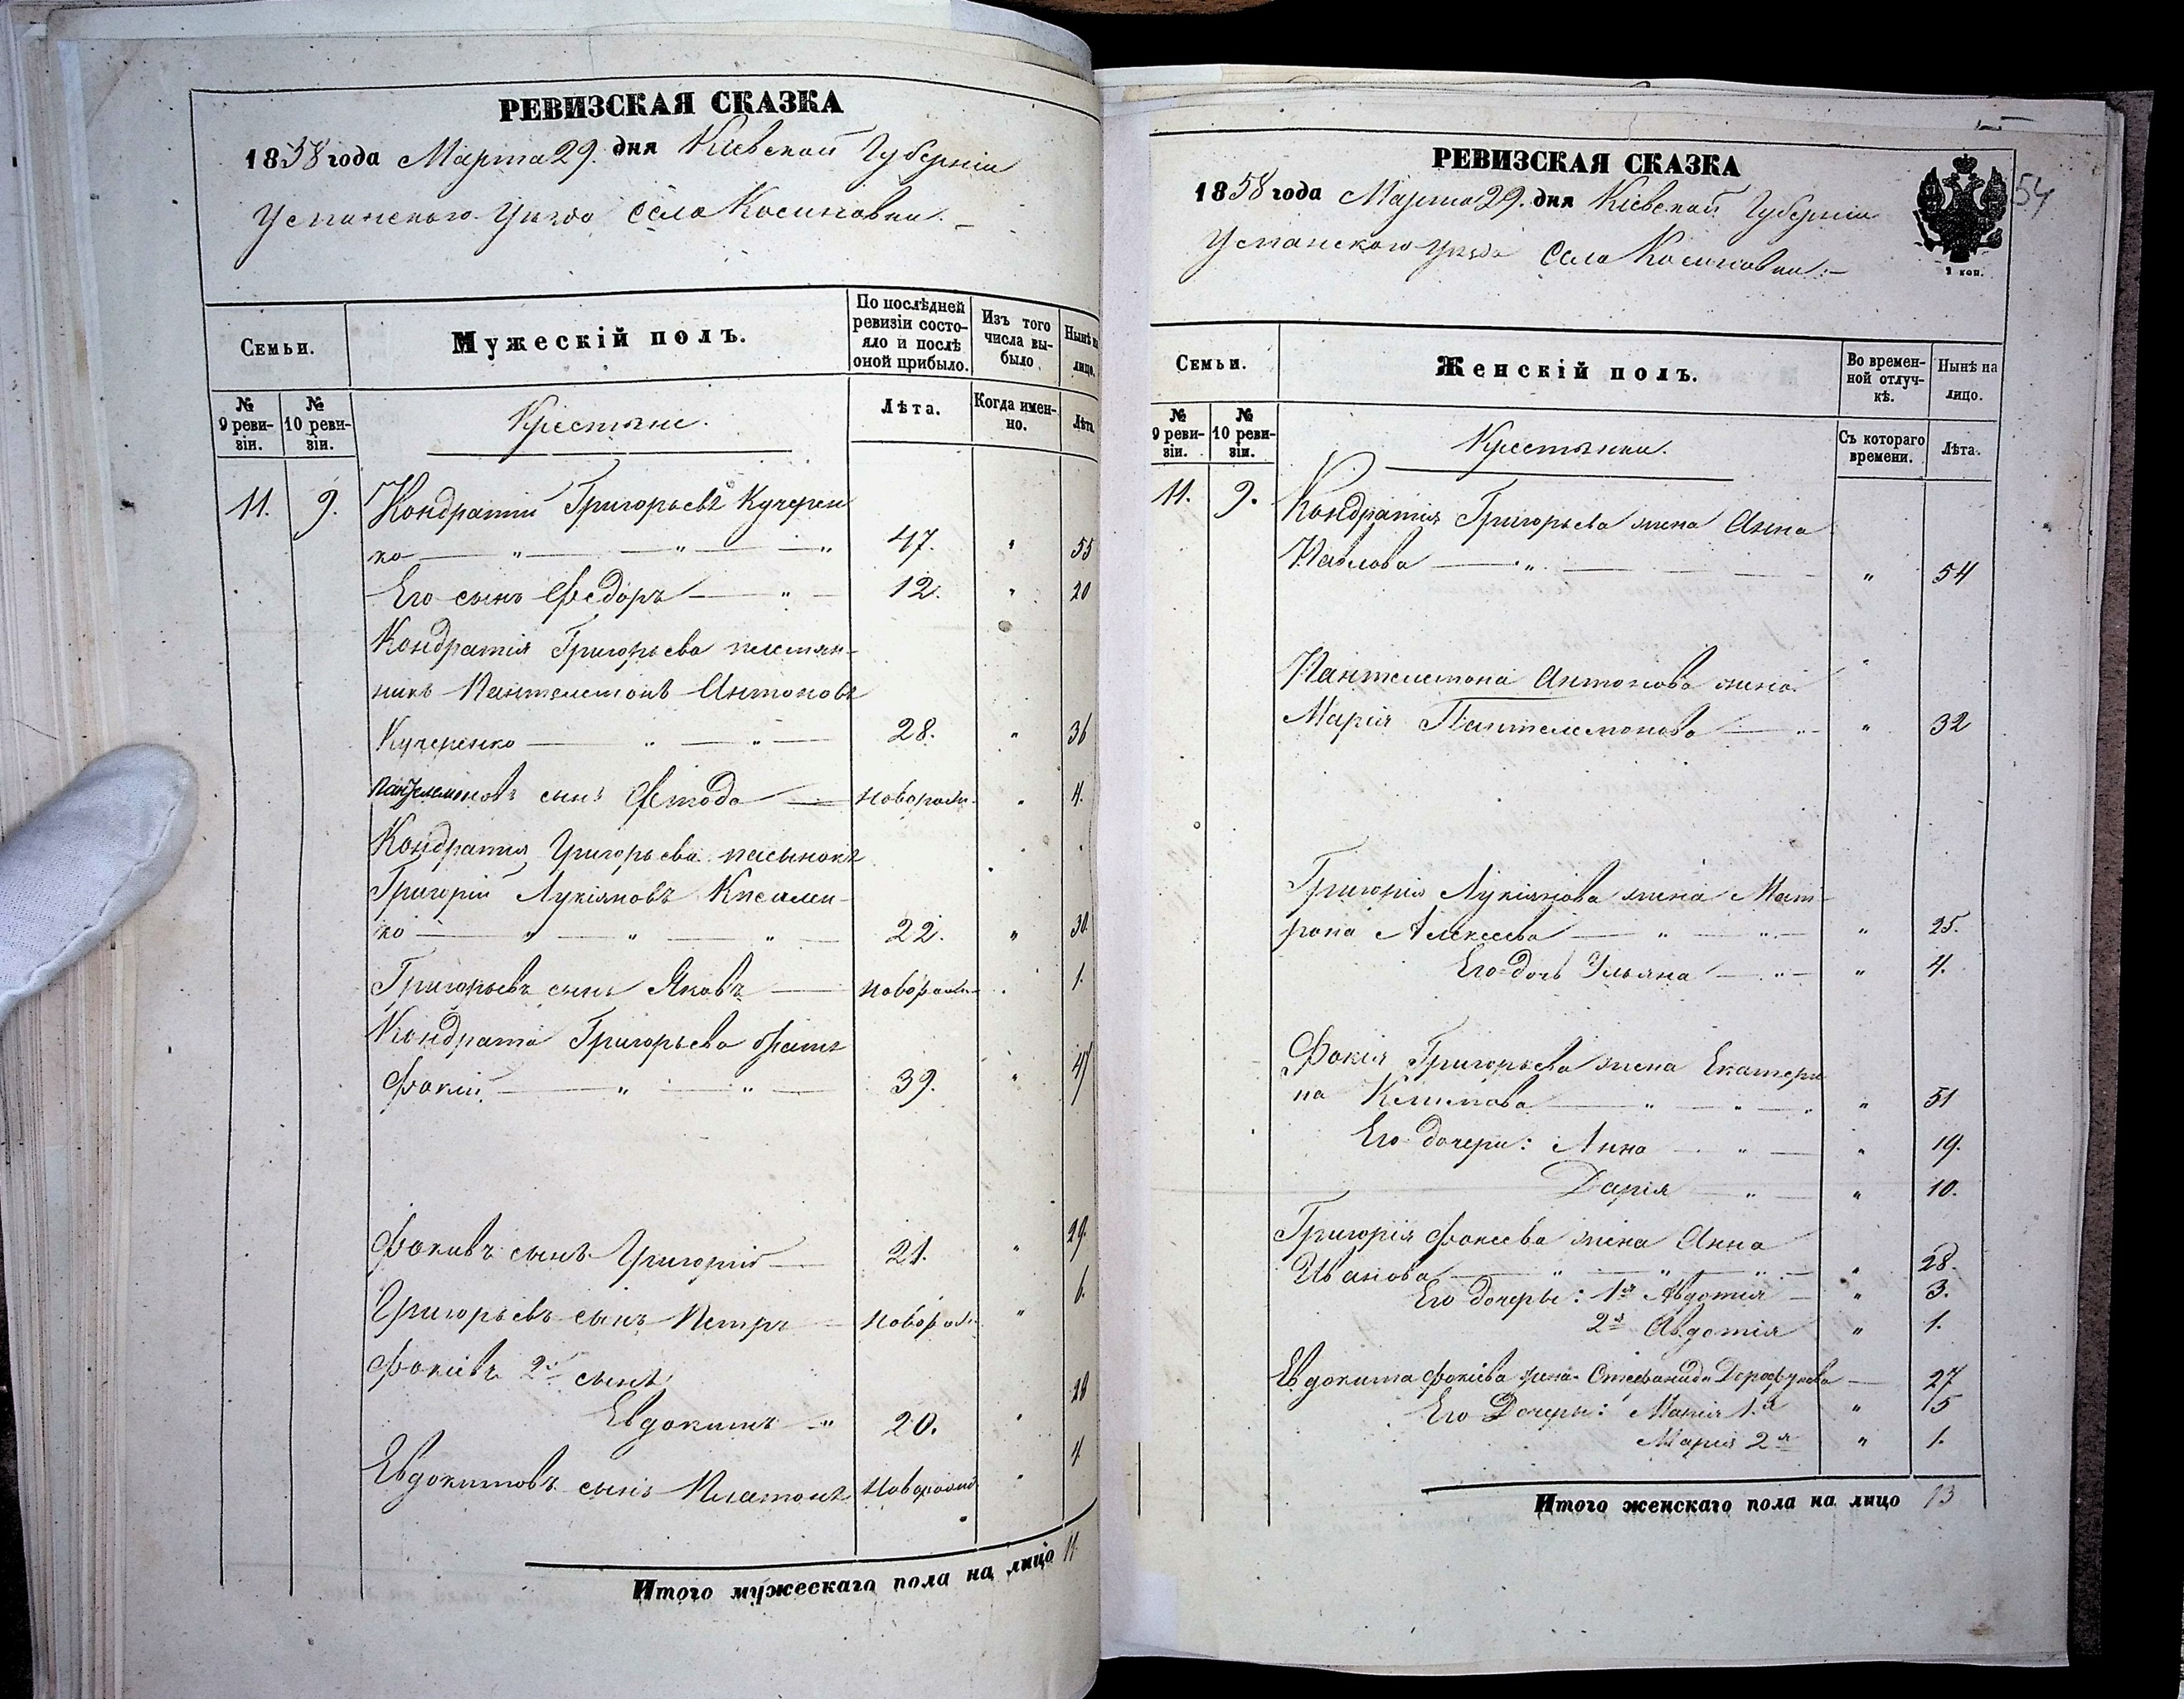 РЕВИЗСКАЯ СКАЗКА
1858 года Марта 29. дня Кіевской Губерніи
Уманского Уѣзда Села Косиновки.
Семьи.
Мужескій полъ.
По послѣдней ревизіи состояло и послѣ оной прибыло.
Изъ того числа выбыло
Нынѣ на лицо.
№ 9 ревизіи.
№ 10 ревизіи.
Крестьяне.
Лѣта.
Когда именно.
Лѣта.
11. 9. Кондратій Григорьевъ Кучерен
ко 47. 55
Его сынъ Федоръ 12. 20
Кондратія Григорьева племян-
никъ Пантелемонъ Антоновъ
Кучеренко 28. 36
Пантелемоновъ сынъ Ѳетодъ новорожд. 4.
Кондратія Григорьева пасынокъ
Григорій Лукіяновъ
ко 22. 30.
Григорьевъ сынъ Яковъ новорожд. 1.
Кондрата Григорьева братъ
Фокій 39. 47
Фокіевъ сынъ Григорій 21. 29.
Григорьевъ сынъ Петръ новорожд. 6.
Фокіевъ 2й сынъ
Евдокимъ 20. 28
Евдокимовъ сынъ Платонъ новорожд. 4
Итого мужескаго пола на лицо 11
РЕВИЗСКАЯ СКАЗКА
54
1858 года Марта 29. дня Кіевской Губерніи
Уманского Уѣзда Села Косиновки.
2 коп.
Семьи.
Женскій полъ.
Во временной отлучкѣ.
Нынѣ на лицо.
№ 9 ревизіи.
№ 10 ревизіи.
Крестьянки.
Съ котораго времени.
Лѣта.
11. 9. Кондратія Григорьева жена Анна
Павлова 54
Пантелемона Антонова жена
Марія Пантелемонова 32
Григорія Лукіянова жена Мат-
рона Алексеева 25.
Его дочь Ульяна 4.
Фокія Григорьева жена Екатери
на Климова 51
Его дочери: Анна 19.
Дарія 10.
Григорія Фокіева жена Анна
Иванова 28.
Его дочеры: 1я Авдотія 3.
2я Авдотія 1.
Евдокима Фокіева жена Стефанида Дорофѣева 27
Его Дочеры: Марія 1.я 15
Марія 2я 1.
Итого женскаго пола на лицо 13